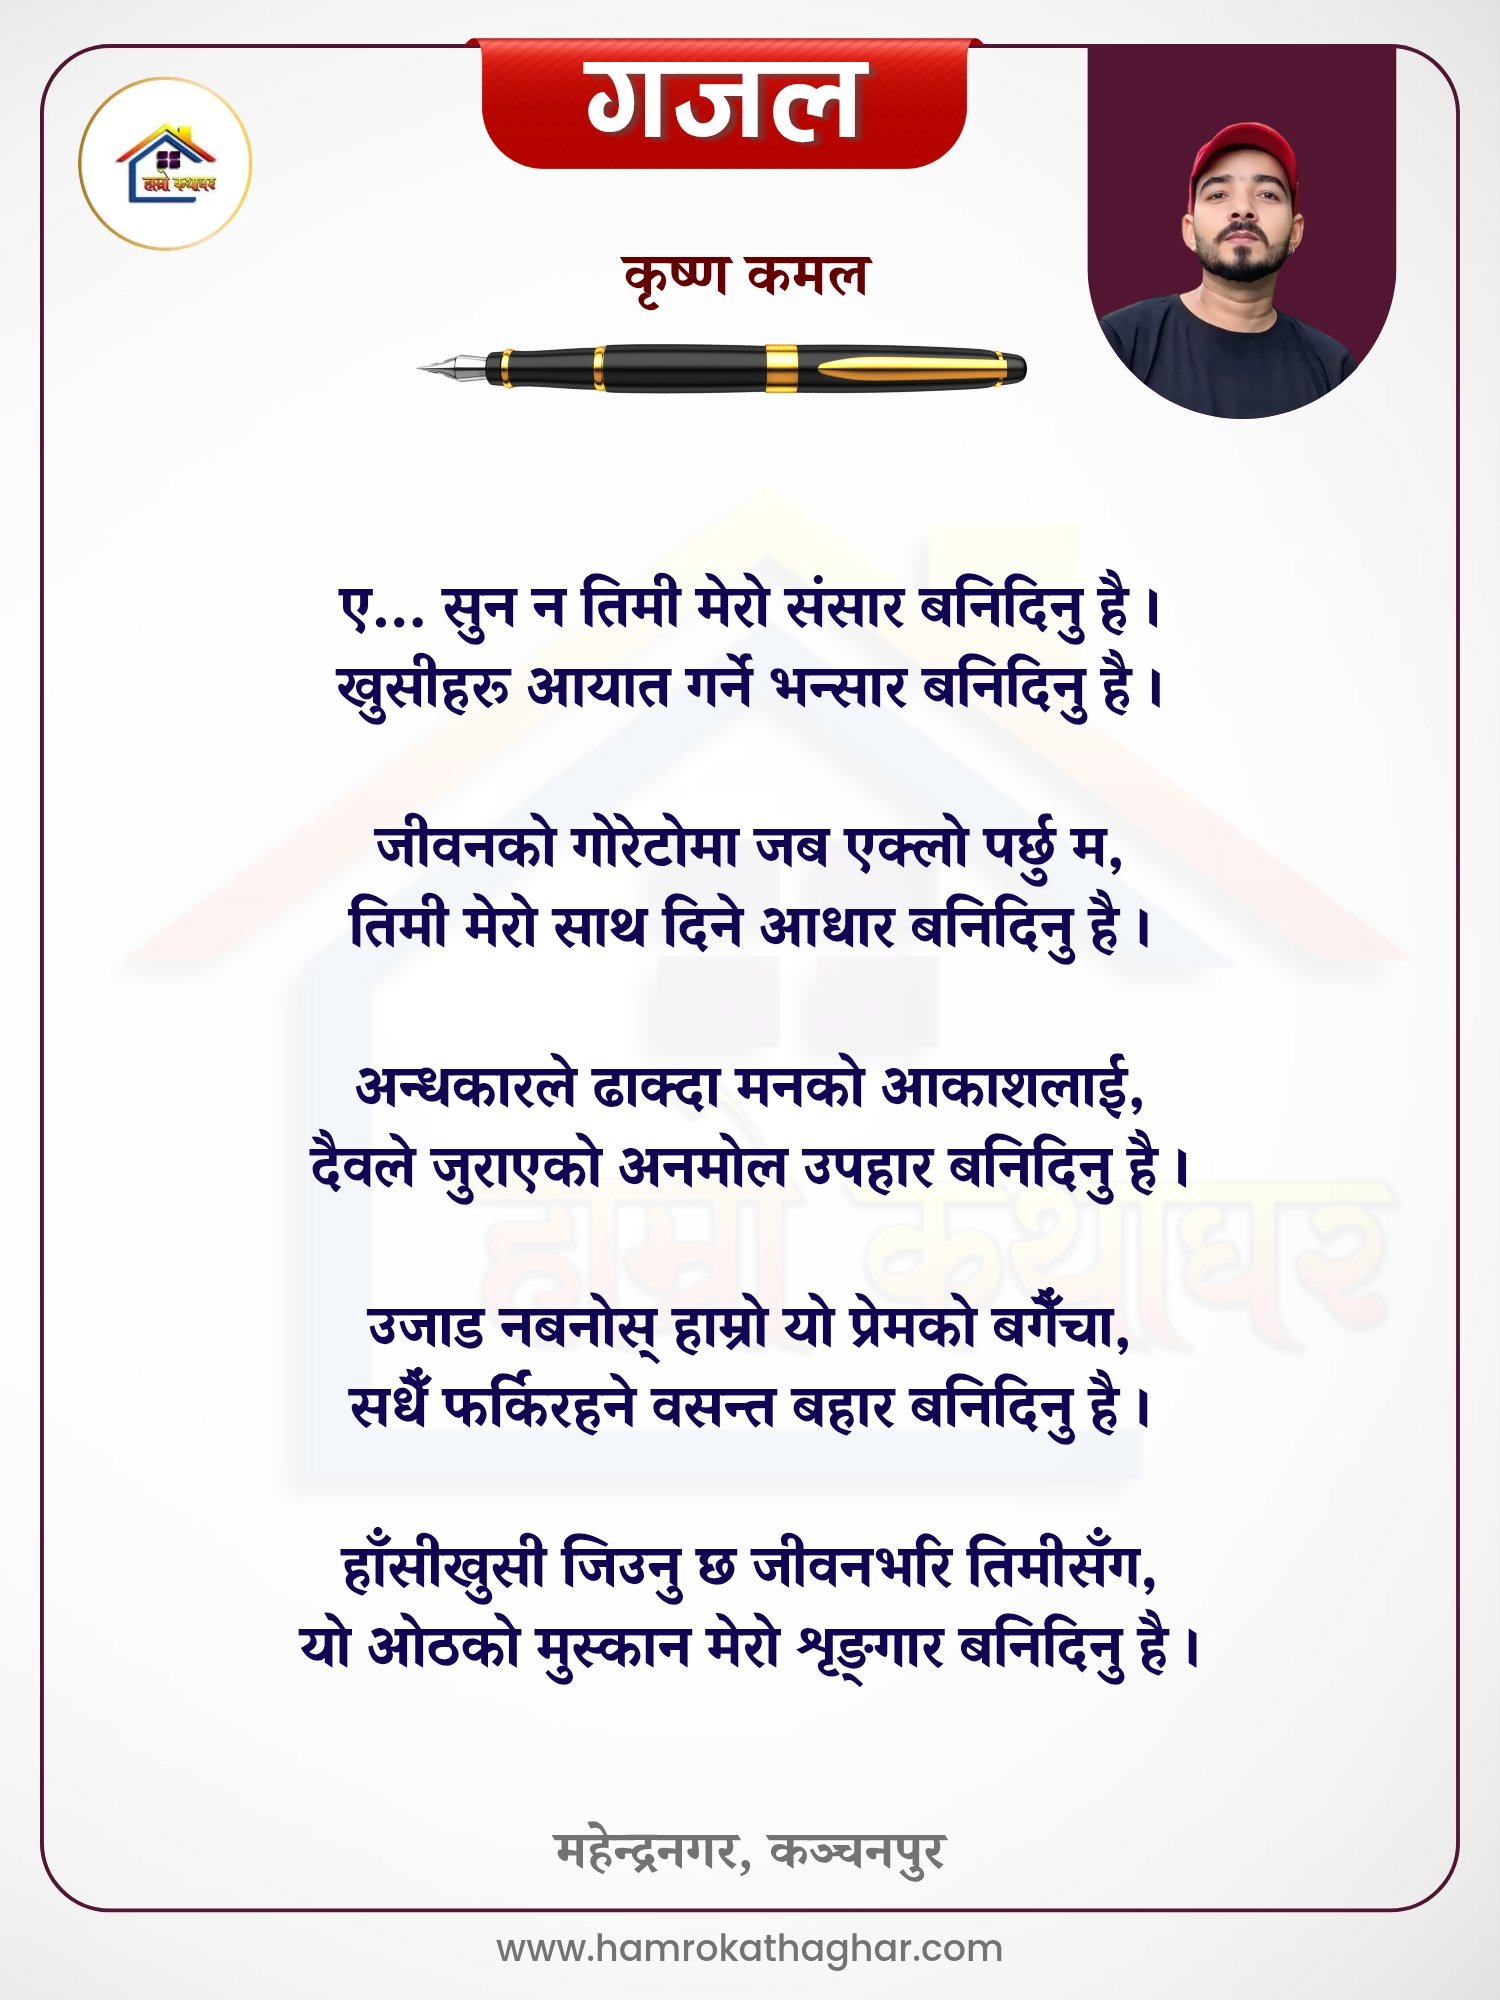 गजल
हाम्रो कथाघर
कृष्ण कमल
ए... सुन न तिमी मेरो संसार बनिदिनु है ।
खुसीहरू आयात गर्ने भन्सार बनिदिनु है ।
जीवनको गोरेटोमा जब एक्लो पर्छु म,
तिमी मेरो साथ दिने आधार बनिदिनु है ।
अन्धकारले ढाक्दा मनको आकाशलाई,
दैवले जुराएको अनमोल उपहार बनिदिनु है ।
हाम्रो कथाघर
उजाड नबनोस् हाम्रो यो प्रेमको बगैँचा,
सधैँ फर्किरहने वसन्त बहार बनिदिनु है ।
हाँसीखुसी जिउनु छ जीवनभरि तिमीसँग,
यो ओठको मुस्कान मेरो शृङ्गार बनिदिनु है ।
महेन्द्रनगर, कञ्चनपुर
www.hamrokathaghar.com